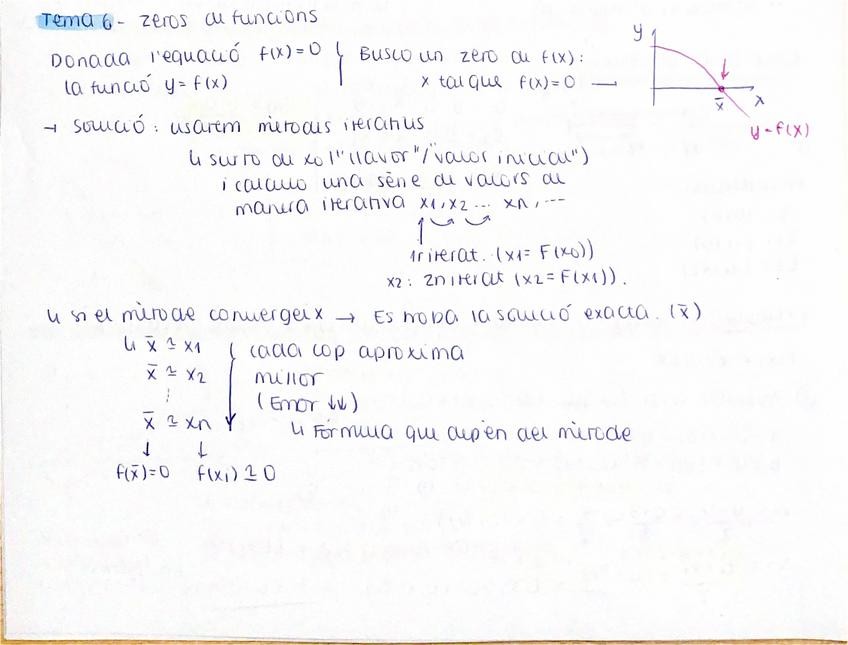 Tema 6 - zeros de funcions
Donada l'equació f(x)=0
la funció y = f(x)
Busco un zero de f(x):
x tal que f(x)=0 —
y
x̄
x
y=f(x)
→ Solució: usarem mètodes iteratius
↳ surto de x0 ("llavor"/"valor inicial")
i calculo una sèrie de valors de
manera iterativa x1, x2 ... xn, ...
1r iterat. (x1 = F(x0))
x2: 2n iterat (x2 = F(x1)).
↳ si el mètode convergeix → Es troba la solució exacta. (x̄)
↳ x̄ ≃ x1
x̄ ≃ x2
⋮
x̄ ≃ xn
cada cop aproxima
millor
(Error ↓↓)
↳ Fórmula que depèn del mètode
↓ ↓
f(x̄)=0 f(x1) ≃ 0